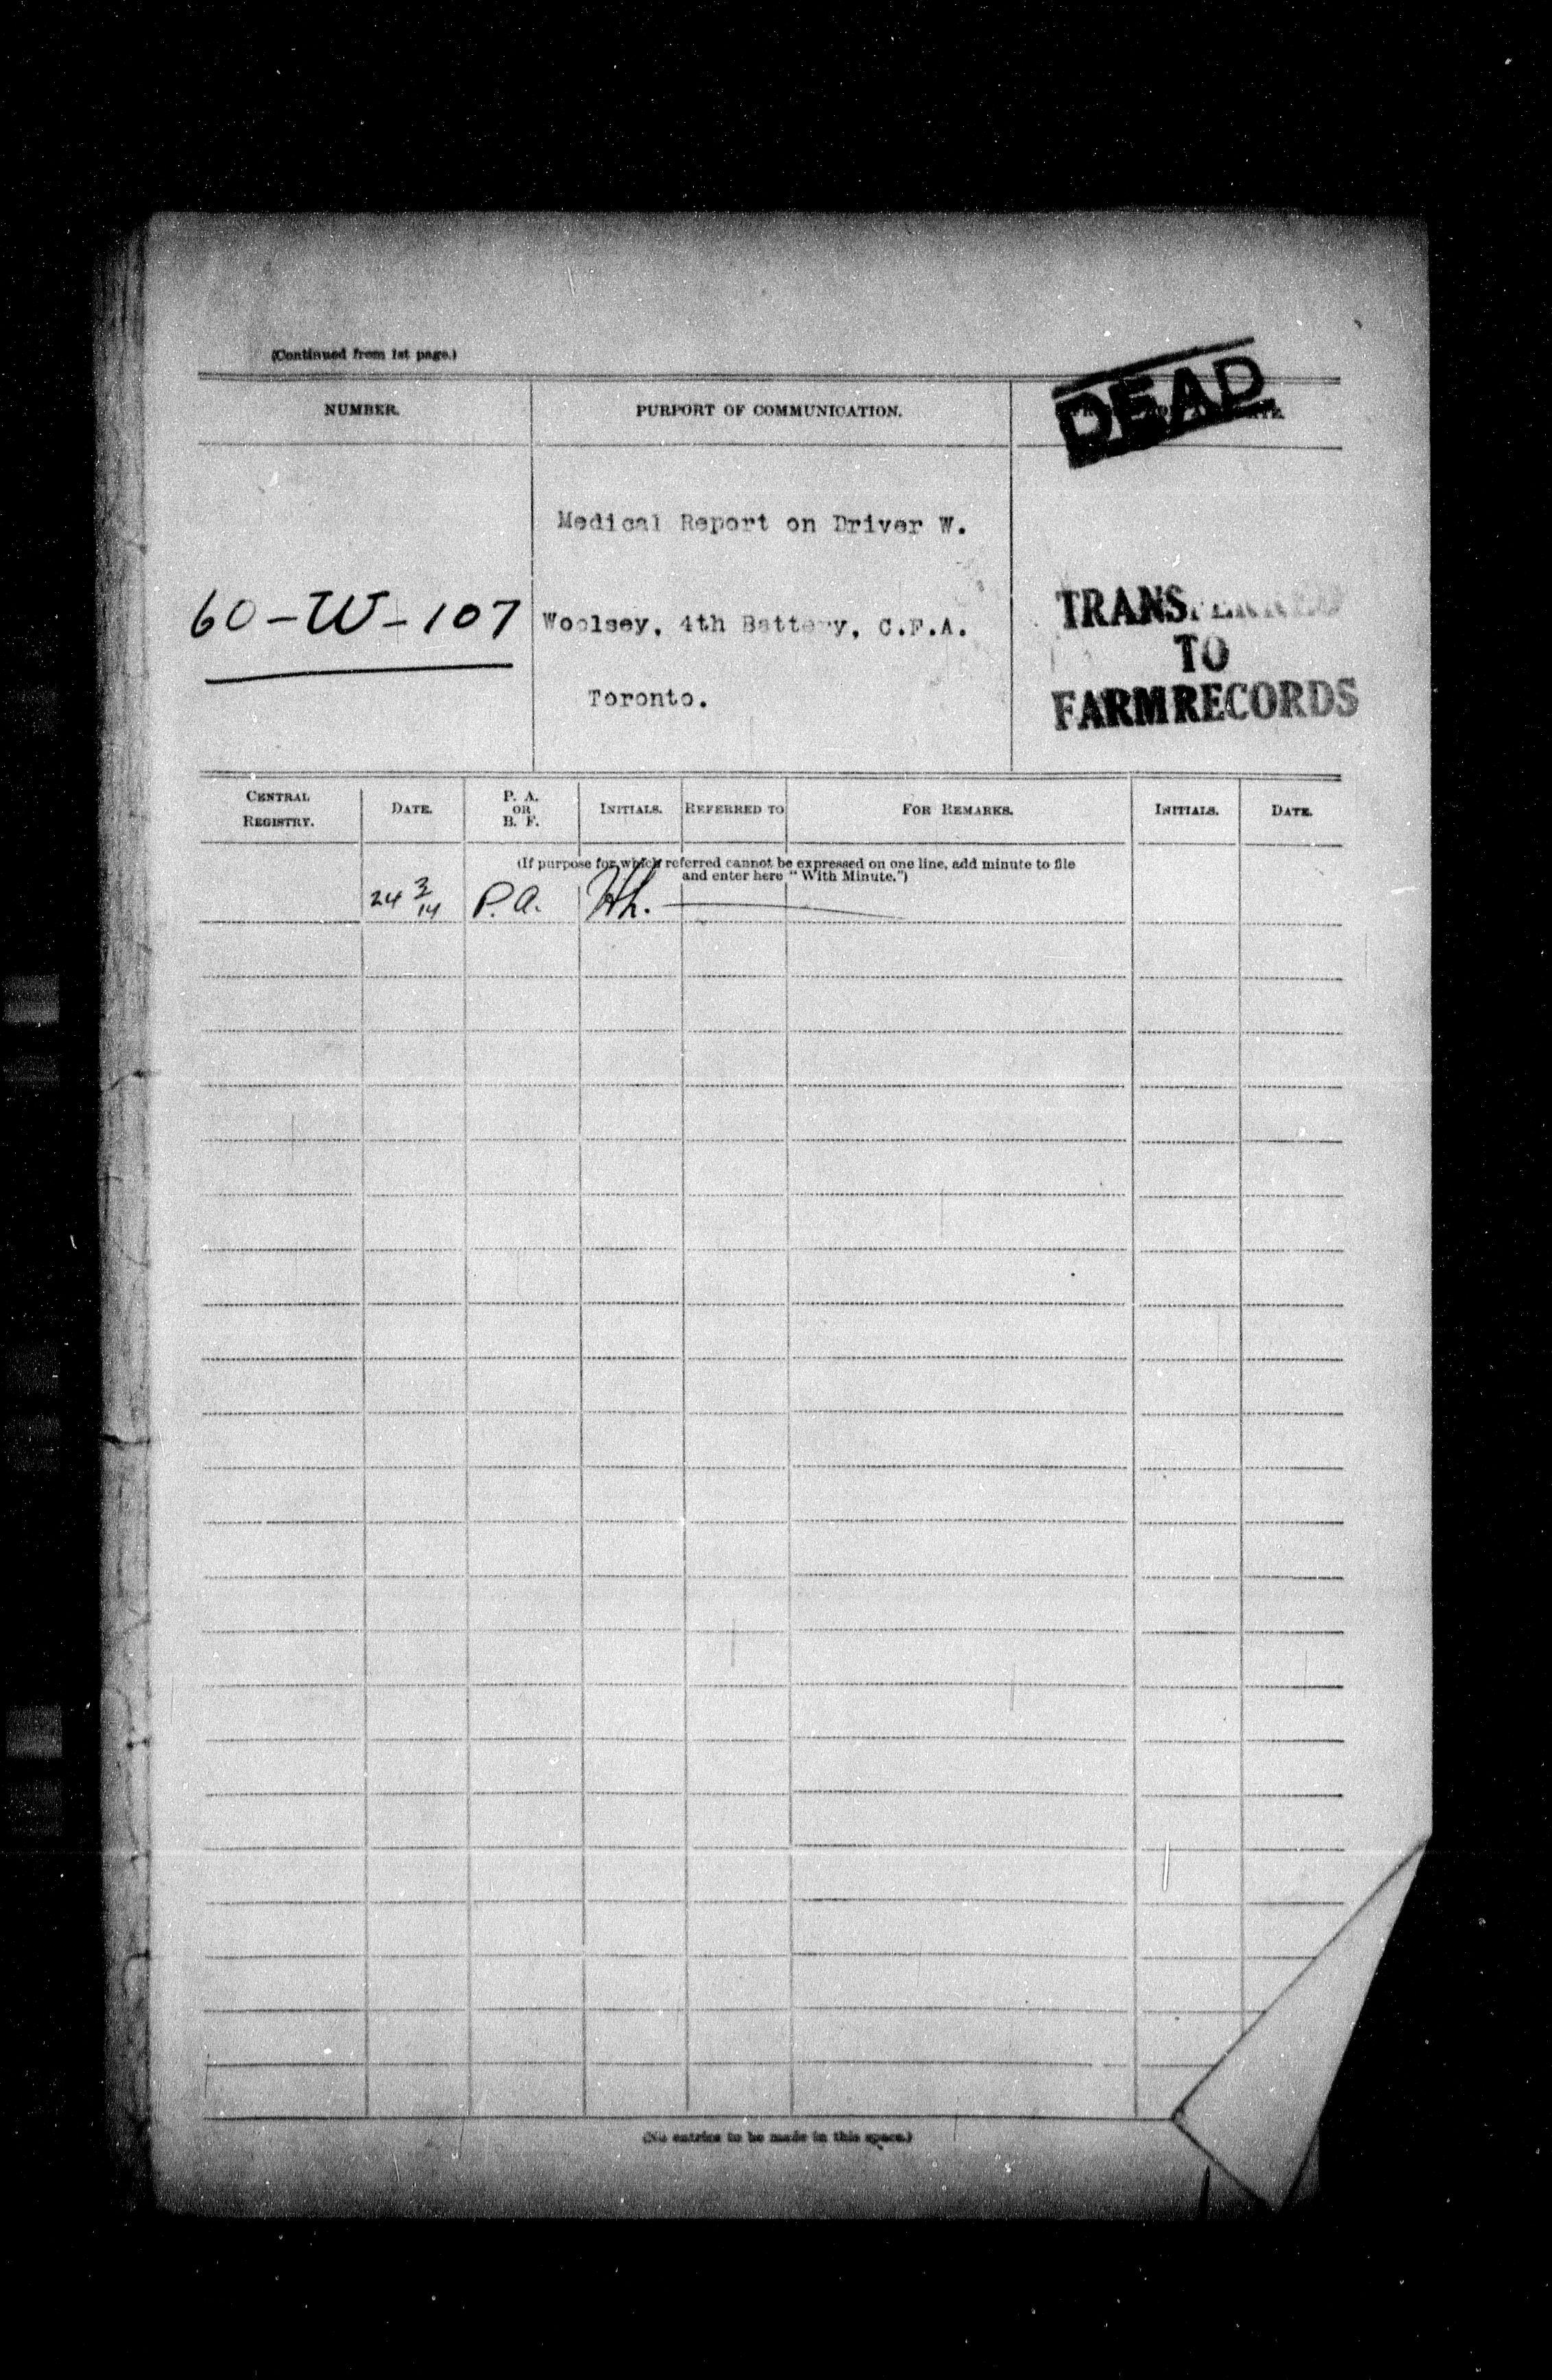 (Continued from 1st page.)
NUMBER.
PURPORT OF COMMUNICATION.
DEAD
Medical Report on Driver W.
60-W-107
Woolsey, 4th Battery, C.F.A.
Toronto.
TRANSFERRED
TO
FARMRECORDS
CENTRAL REGISTRY.
DATE.
P. A. OR B. F.
INITIALS.
REFERRED TO
FOR REMARKS.
INITIALS.
DATE.
(If purpose for which referred cannot be expressed on one line, add minute to file
and enter here "With Minute.")
24 3/14 P.A.
(No entries to be made in this space.)